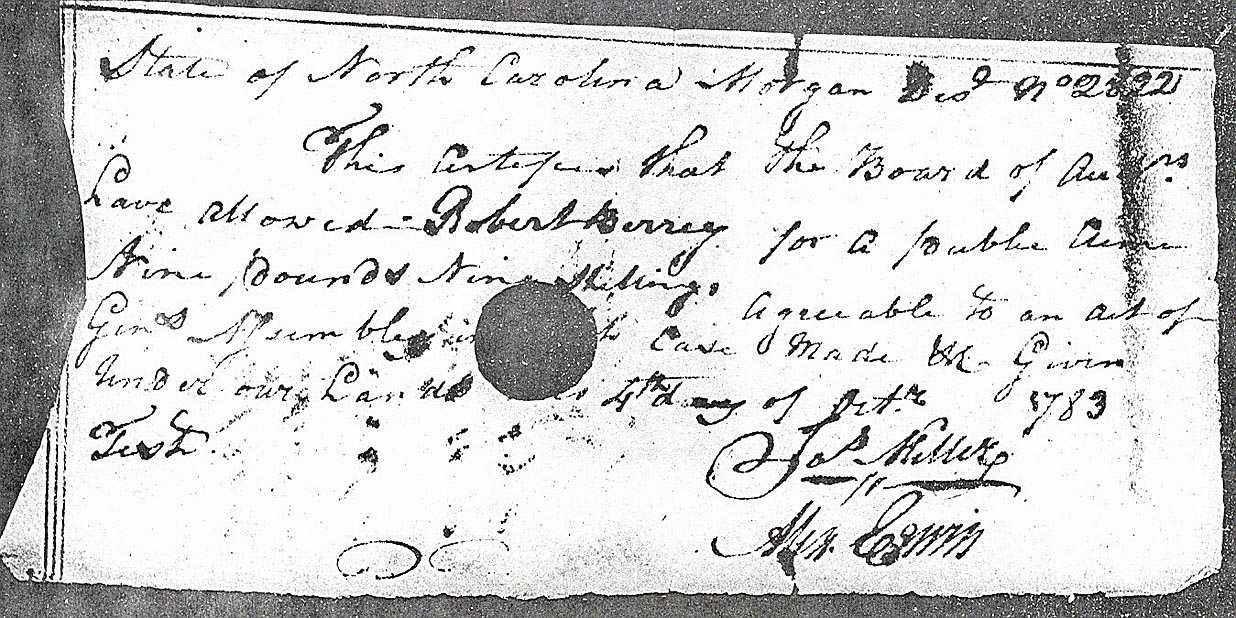 State of North Carolina Morgan Dist No 2822
This Certifies that the Board of Audrs
have allowed Robert Berrey for a public
Nine pounds Nine Shillings
Agreeable to an act of
Genl Assembley in Case Made & Given
Under our Hands 4th day of Octr 1783
Test
Jos Miller
Alex. Erwin